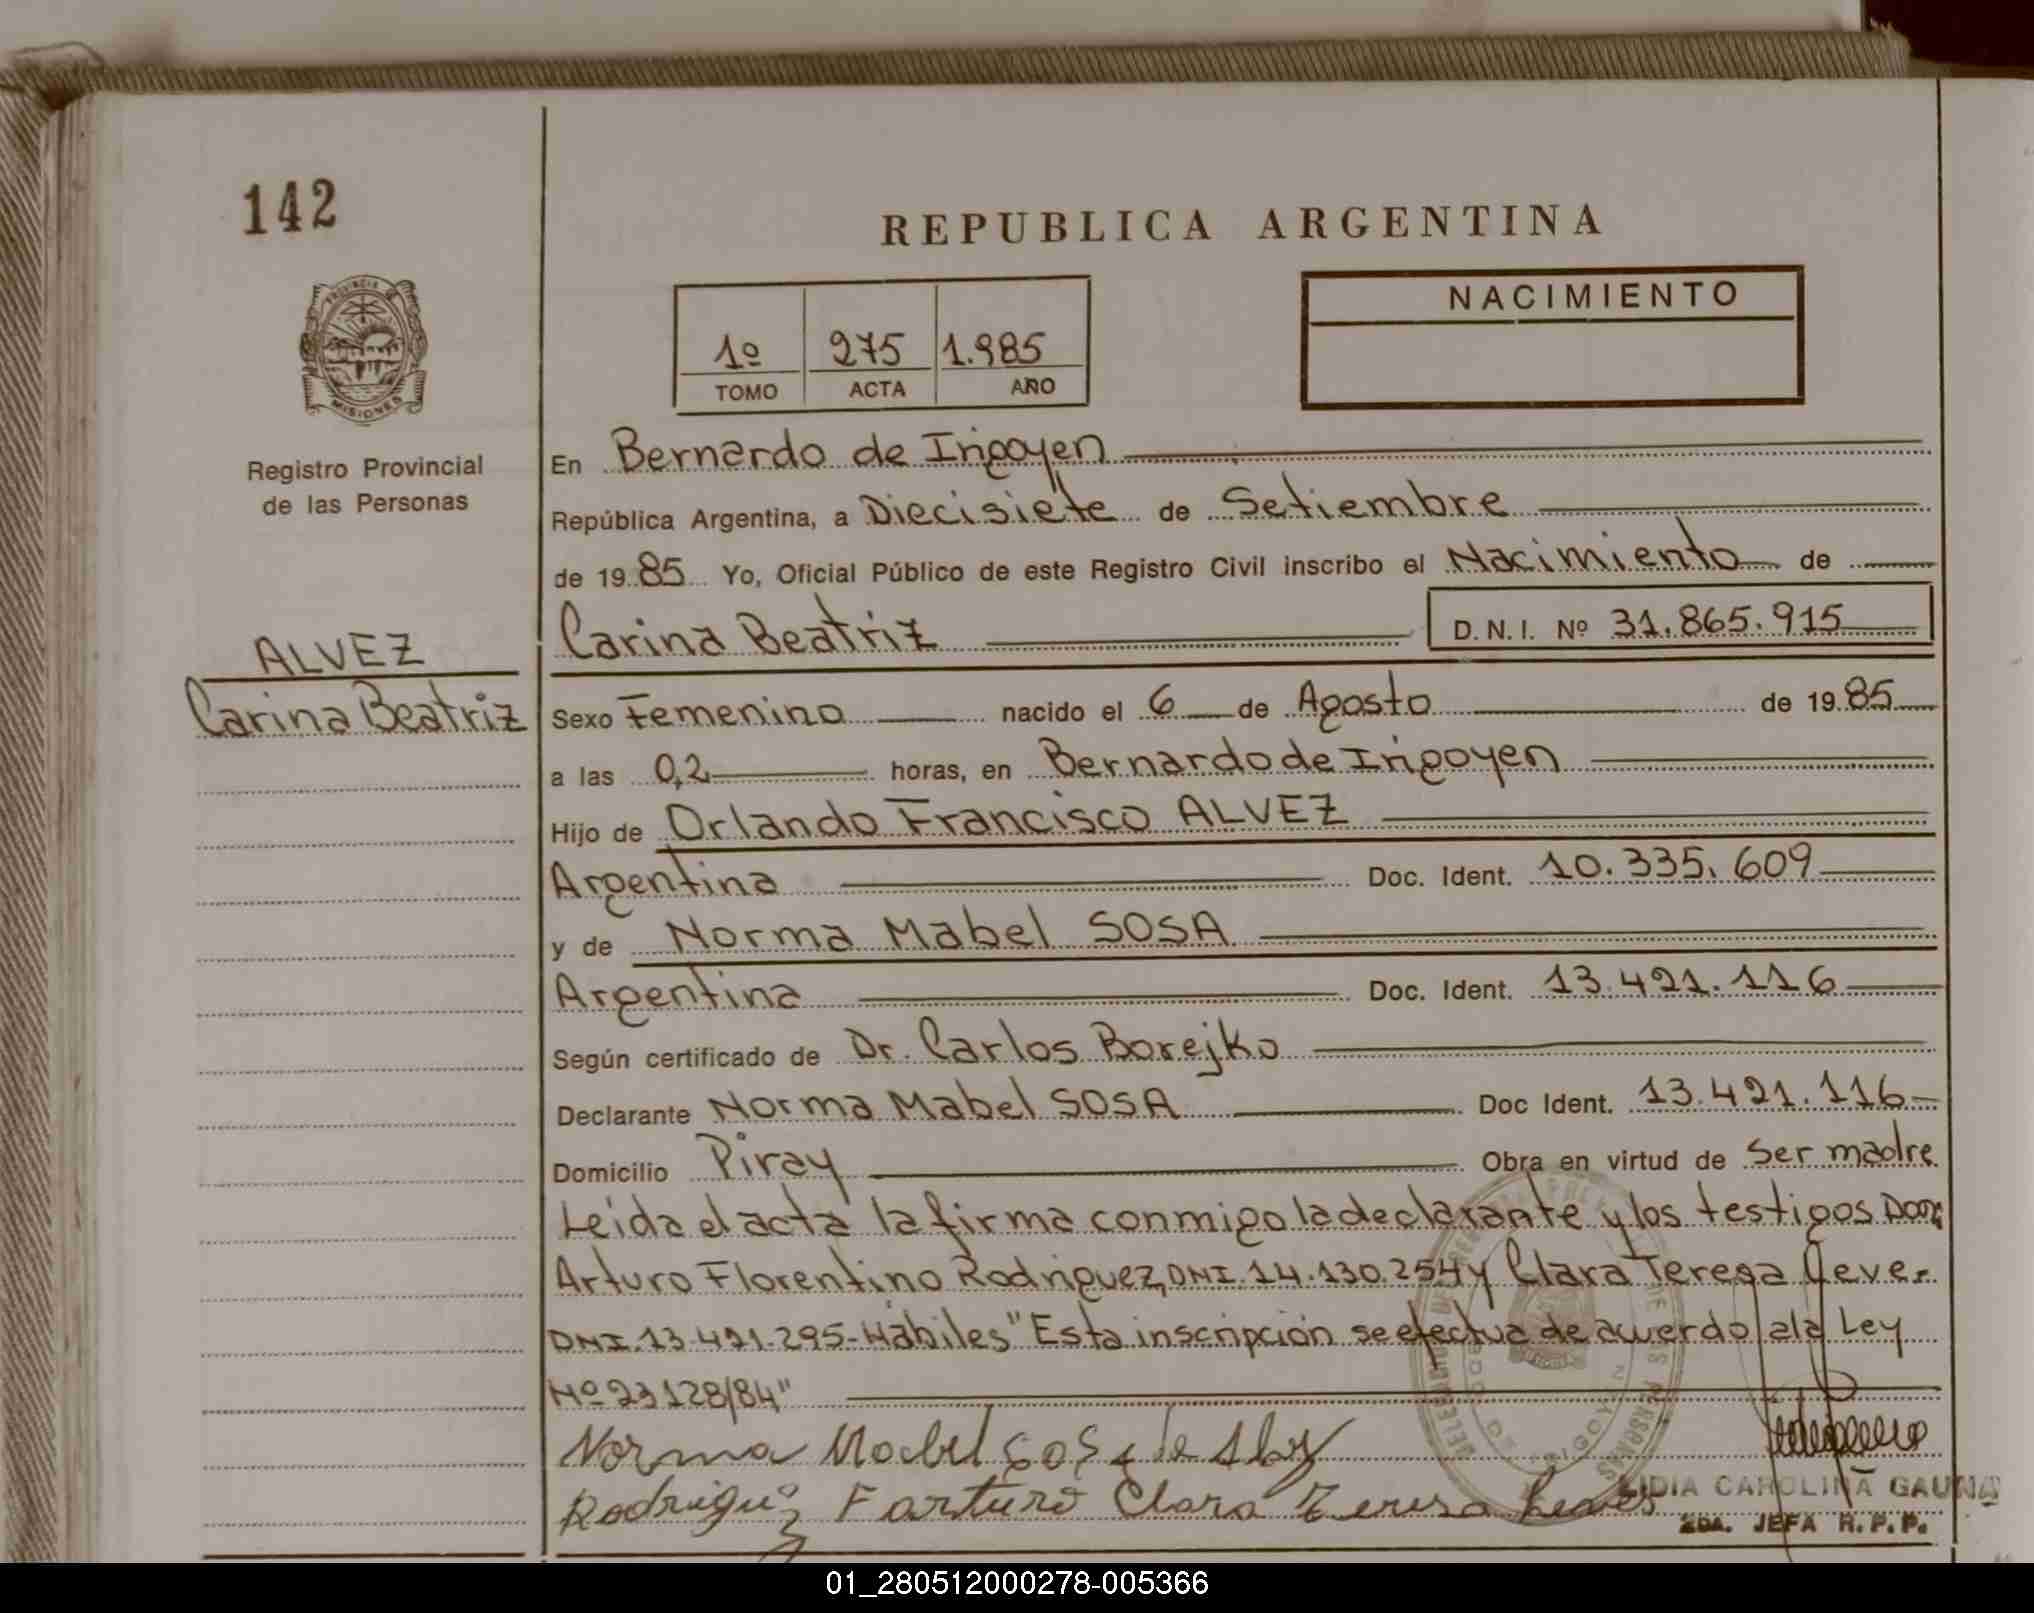 142
REPUBLICA ARGENTINA
PROVINCIA DE
MISIONES
NACIMIENTO
1º 275 1.985
TOMO ACTA AÑO
Registro Provincial
de las Personas
En Bernardo de Irigoyen
República Argentina, a Diecisiete de Setiembre
de 1985 Yo, Oficial Público de este Registro Civil inscribo el Nacimiento de
Carina Beatriz D.N.I. Nº 31.865.915
ALVEZ
Carina Beatriz
Sexo Femenino nacido el 6 de Agosto de 1985
a las 0,2 horas, en Bernardo de Irigoyen
Hijo de Orlando Francisco ALVEZ
Argentina Doc. Ident. 10.335.609
y de Norma Mabel SOSA
Argentina Doc. Ident. 13.421.116
Según certificado de Dr. Carlos Borejko
Declarante Norma Mabel SOSA Doc Ident. 13.421.116
Domicilio Piray Obra en virtud de Ser madre
Leida el acta la firma conmigo la declarante y los testigos Don:
Arturo Florentino Rodriguez, DNI.14.130.254 y Clara Teresa
DNI.13.421.295-Hábiles "Esta inscripción se efectua de acuerdo a la Ley
Nº 23128/84"
Norma Mabel Sosa de
Rodriguez F arturo Clara Teresa
LIDIA CAROLINA GAUNA
2DA. JEFA R.P.P.
01_280512000278-005366